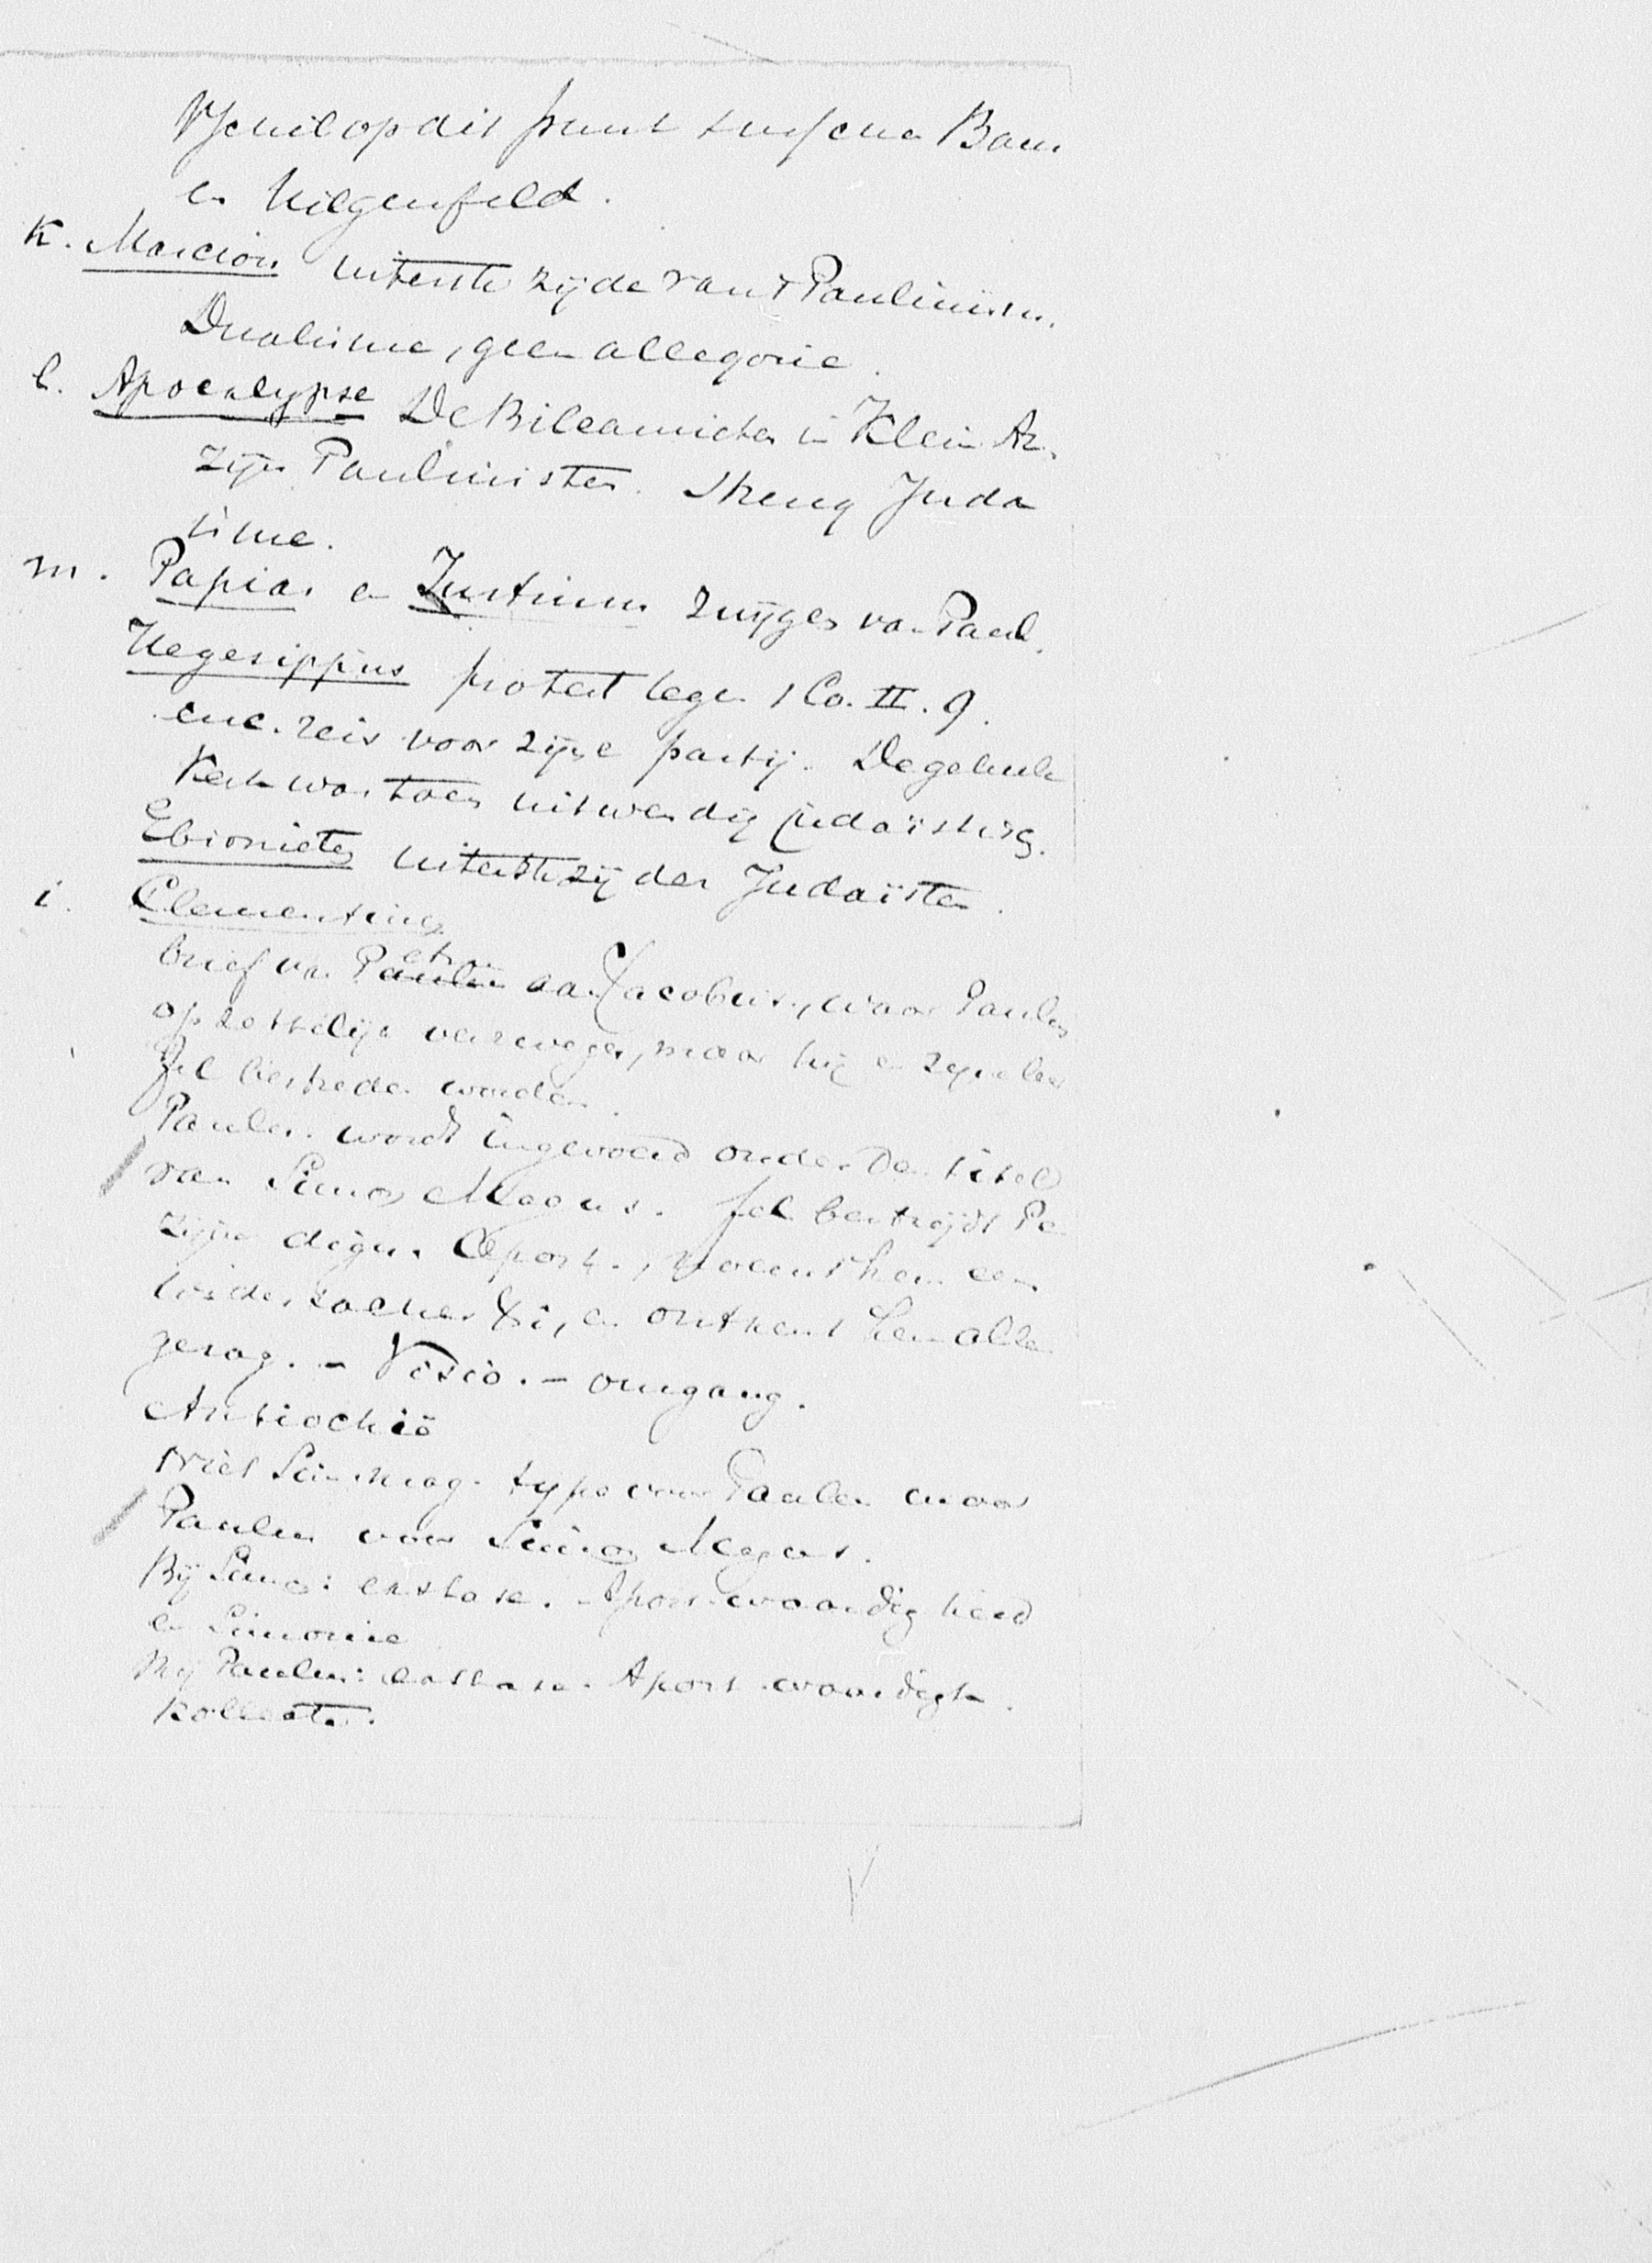 Vschil op dit punt tusschen Baur
en Hilgenfeld.
K. Marcion uiterste zijde van 't Paulinism.
Dualisme, geen allegorie.
l. Apocalypse De Bileamieten in Klein Az.
zijn Paulinisten. Streng Juda
isme.
m. Papias en Justinus zwijgen van Paul.
Hegesippus protest tegen 1 Co. II. 9.
enc. reis voor zijne partij. De geheele
Kerk was toen uitwendig judaïstisch.
Ebionieten uiterste zij der Judaïsten.
i. Clementinen
brief van Petrus aan Jacobus, waar Paulus
opzettelijk verzwegen, maar hij en zijne leer
fel bestreden worden.
Paulus wordt ingevoerd onder den titel
van Simon Magus. fel bestrijdt Pe
zijn Apost., noemt hem een
wederzacher, en ontkent hem alle
gezag. - Visio. - omgang.
Antiochië
Niet Sim. Mag. type voor Paulus maar
Paulus voor Simon Magus.
Bij Simon: extase. - Apost. waardigheid
en Simonie
Bij Paulus: extase. Apost. waardigh.
Kollecte.